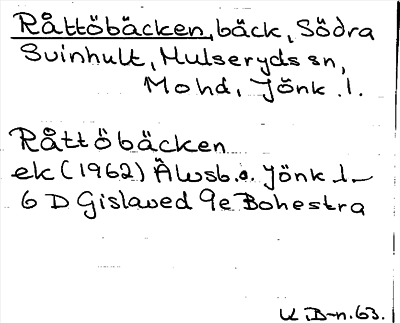 Råttöbäcken, bäck, Södra
Svinhult, Hulseryds sn,
Mohd, Jönk. l.
Råttöbäcken
ek (1962) Älvsb. o. Jönk l
6 D Gislaved 9e Bohestra
K. B-n. 63.